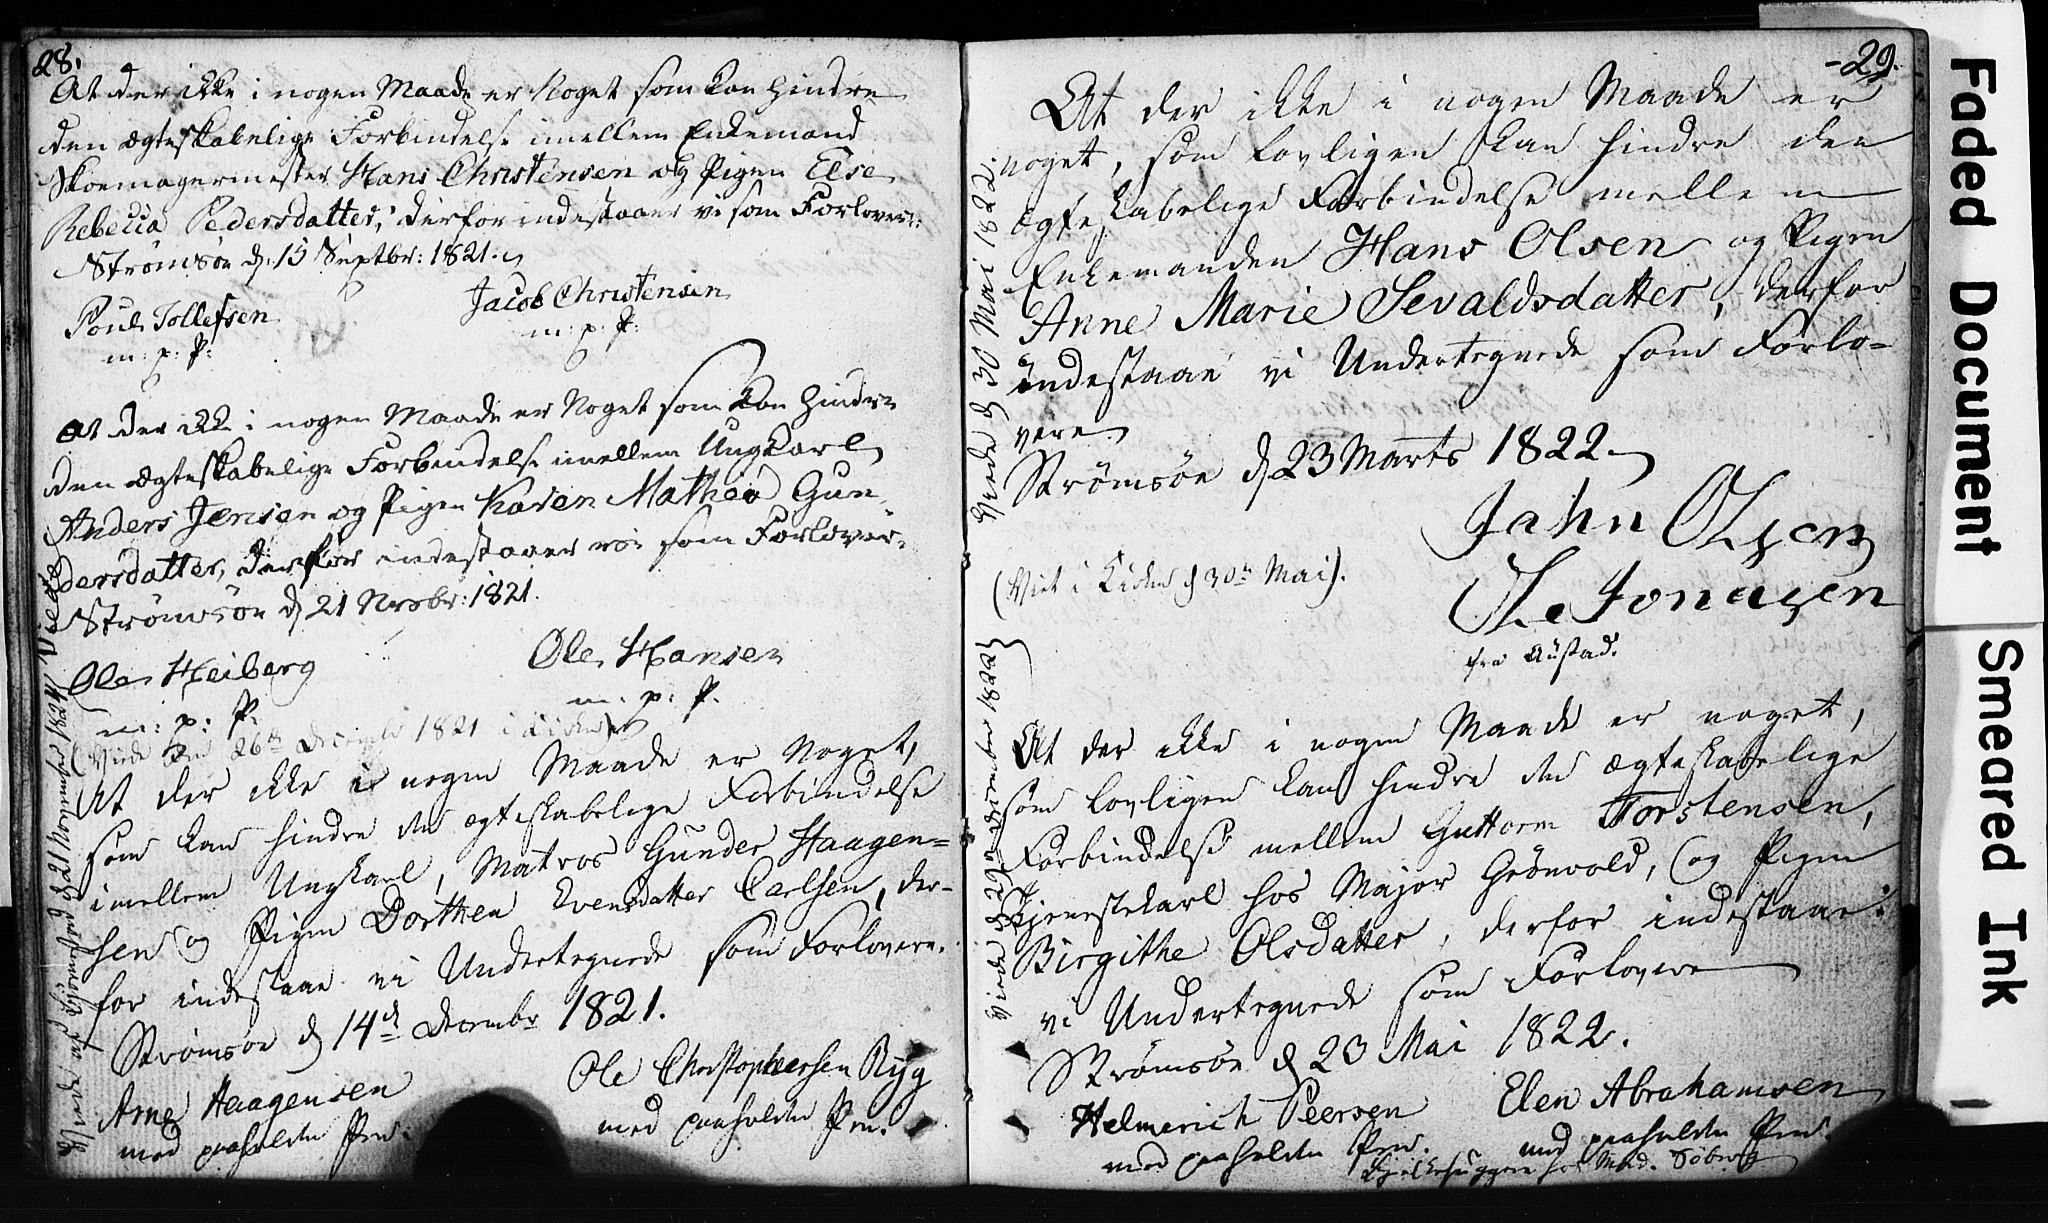 28.
At der ikke i nogen Maade er Noget som kan hindre
den ægteskabelige Forbindelse imellem Enkemand
Skoemagermester Hans Christensen og Pigen Else
Rebecca Pedersdatter, derfor indestaaer vi som Forlover:
Strømsøe d: 15 Septbr: 1821.
Poul Tollefsen
m: p: P:
Jacob Christensen
m: p: P:
At der ikke i nogen Maade er Noget som kan hindre
den ægteskabelige Forbindelse imellem Ungkarl
Anders Jensen og Pigen Karen Mathea Gun-
dersdatter, derfor indestaaer vi som Forlover.
Strømsøe d 21 Novbr: 1821.
Ole Heiberg
m: p: P.
Ole Hansen
m. p: P.
(Viede den 26de December 1821 i Kirken)
At der ikke i nogen Maade er Noget,
som kan hindre den ægteskabelige Forbindelse
imellem Ungkarl, Matros Gunder Haagen=
sen og Pigen Dorthea Evensdatter Carlsen, der-
for indestaae vi Undertegnede som Forlovere.
Strømsøe d 14d Decembr 1821.
Arne Haagensen
med paaholden Pen.
Ole Christophersen Ryg
med paaholden Pen.
Viede af d 21 November 1821
-29.
At der ikke i nogen Maade er
noget, som lovligen kan hindre den
ægteskabelige Forbindelse mellem
Enkemanden Hans Olsen og Pigen
Anne Marie Sevaldsdatter, derfor
indestaae vi Undertegnede som Forlo-
vere.
Strømsøe d 23 Marts 1822.
Jahn Olsen
Ole Jonasen
fra Austad.
(Viet i Kirken d 30te Mai).
Viede d 30 Mai 1822.
At der ikke i nogen Maade er noget,
som lovligen kan hindre den ægteskabelige
Forbindelse mellem Guttorm Torstensen,
Tjenestekarl hos Major Grönvold, og Pigen
Birgithe Olsdatter, derfor indestaae
vi Undertegnede som Forlovere
Strømsøe d 23 Mai 1822.
Helmerich Peersen
med paaholden Pen.
Elen Abrahamsen
med paaholden Pen.
hos Mad. Söberg
Viede d 29 November 1822
Faded Document
Smeared Ink